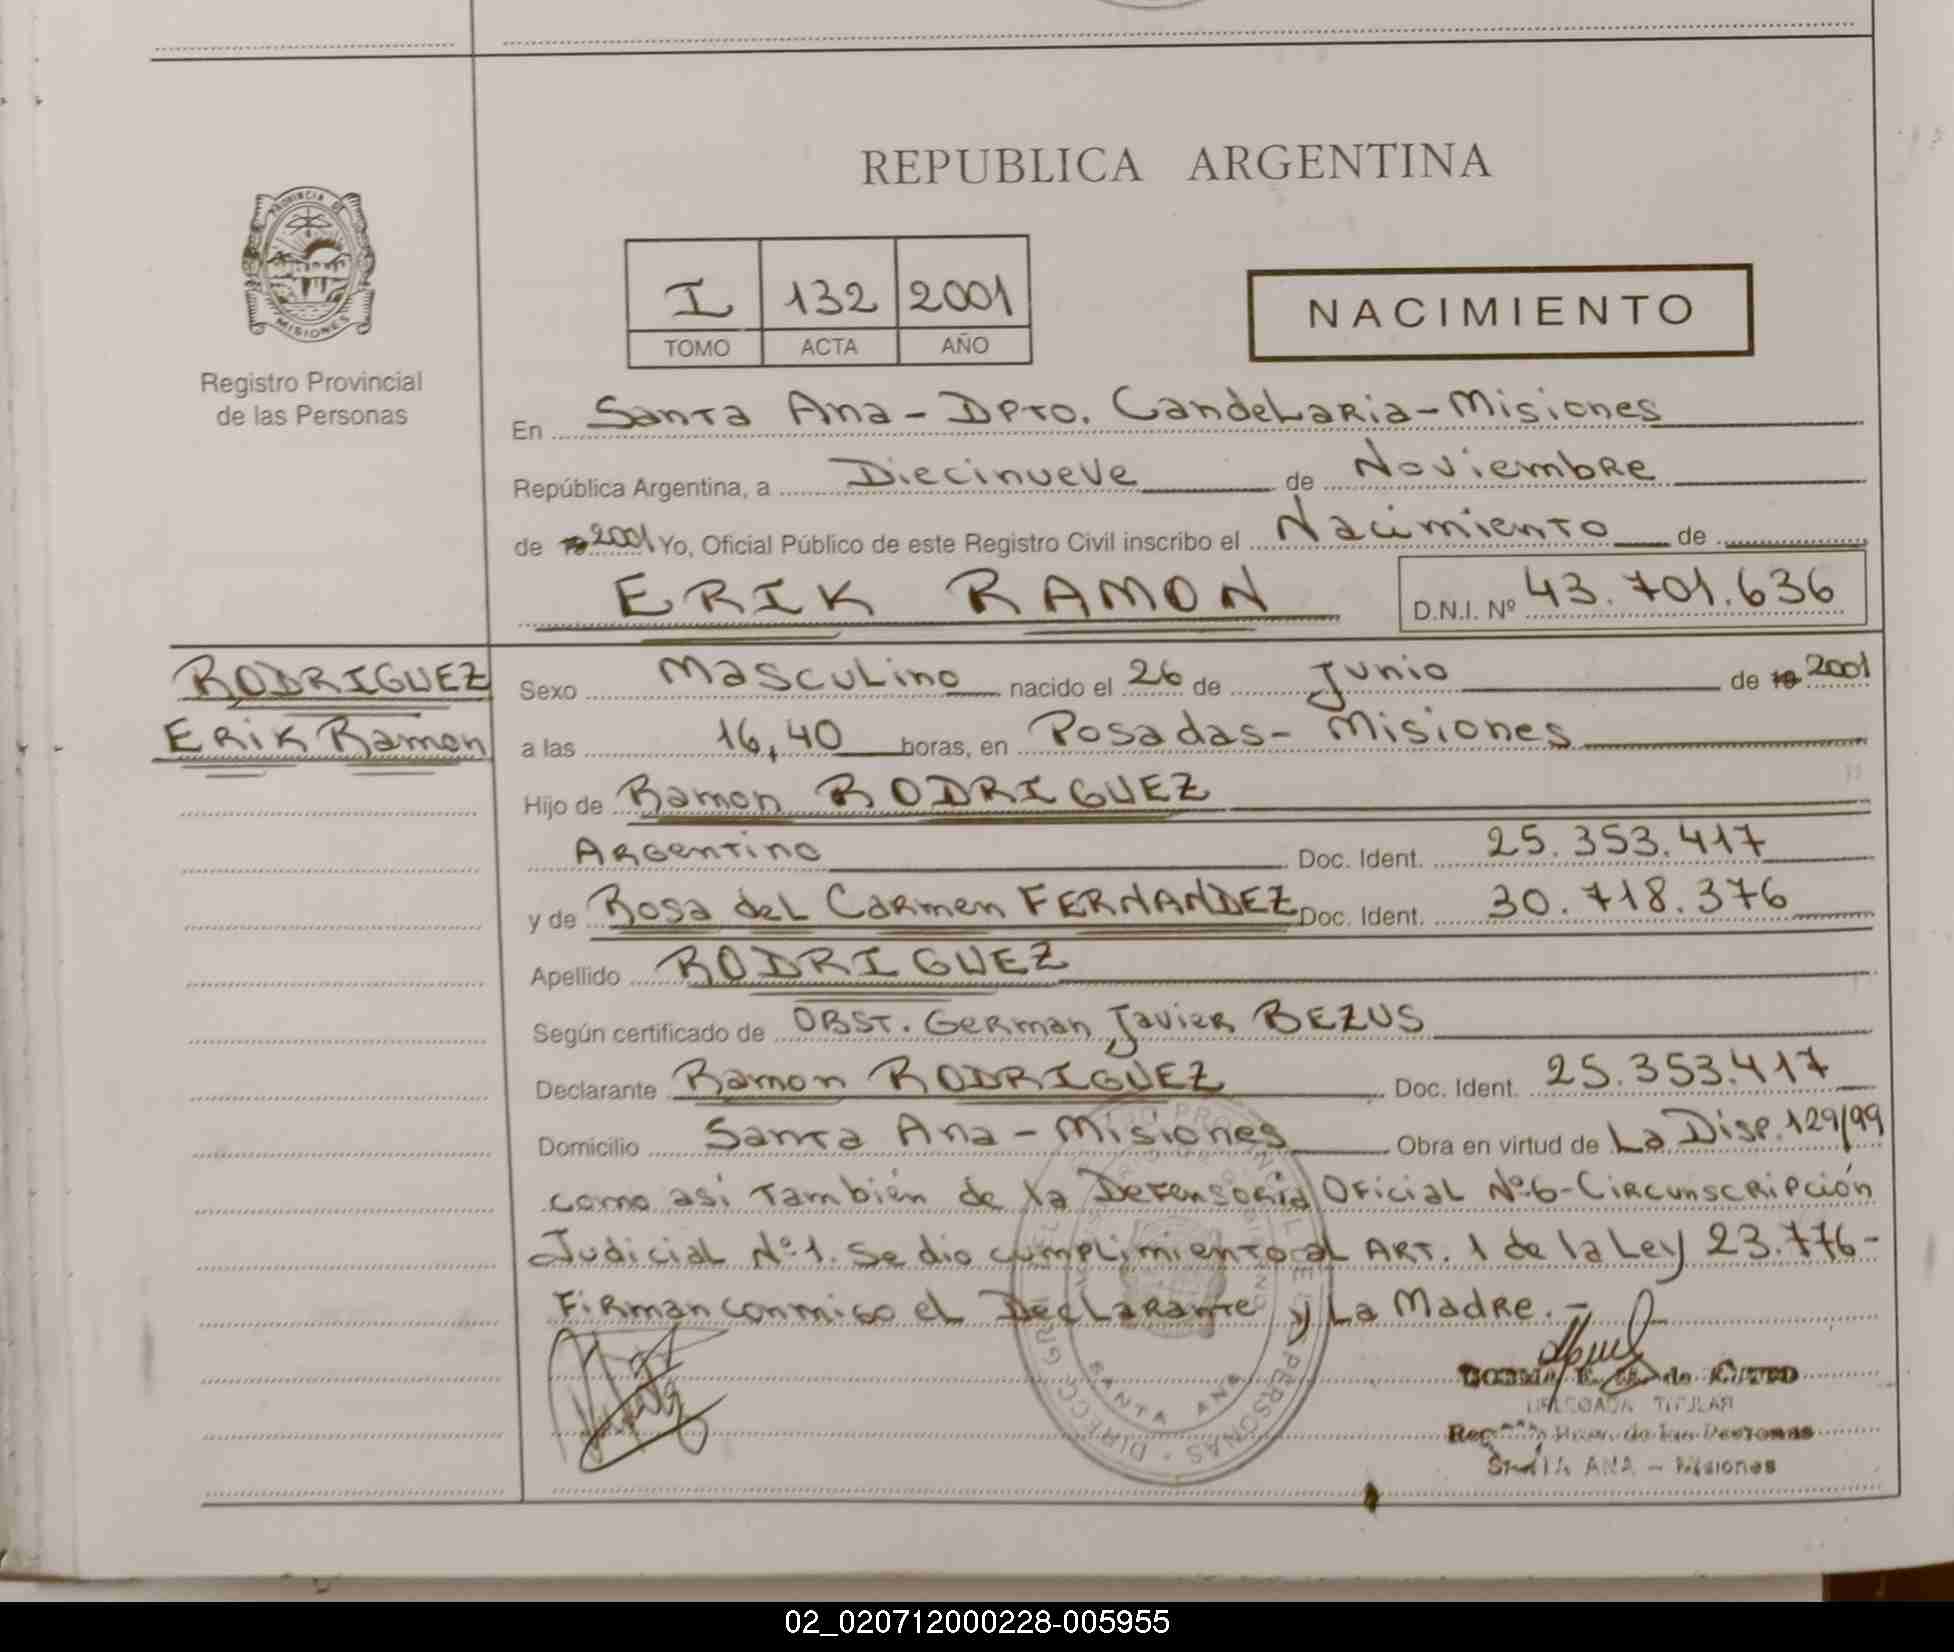 REPUBLICA ARGENTINA
PROVINCIA DE
MISIONES
Registro Provincial
de las Personas
I 132 2001
TOMO ACTA AÑO
NACIMIENTO
En Santa Ana - Dpto. Candelaria - Misiones
República Argentina, a Diecinueve de Noviembre
de 2001 Yo, Oficial Público de este Registro Civil inscribo el Nacimiento de
ERIK RAMON D.N.I. Nº 43.701.636
RODRIGUEZ
Erik Ramon
Sexo Masculino nacido el 26 de Junio de 19 2001
a las 16,40 horas, en Posadas - Misiones
Hijo de Ramon RODRIGUEZ
Argentino Doc. Ident. 25.353.417
y de Rosa del Carmen FERNANDEZ Doc. Ident. 30.718.376
Apellido RODRIGUEZ
Según certificado de OBST. German Javier BEZUS
Declarante Ramon RODRIGUEZ Doc. Ident. 25.353.417
Domicilio Santa Ana - Misiones Obra en virtud de La Disp. 129/99
como asi también de la Defensoria Oficial Nº 6 - Circunscripción
Judicial Nº 1. Se dio cumplimiento al ART. 1 de la Ley 23.776 -
Firman conmigo el Declarante y La Madre. -
SANTA ANA
PERSONAS
DELEGADA TITULAR
de las Personas
SANTA ANA - Misiones
02_020712000228-005955